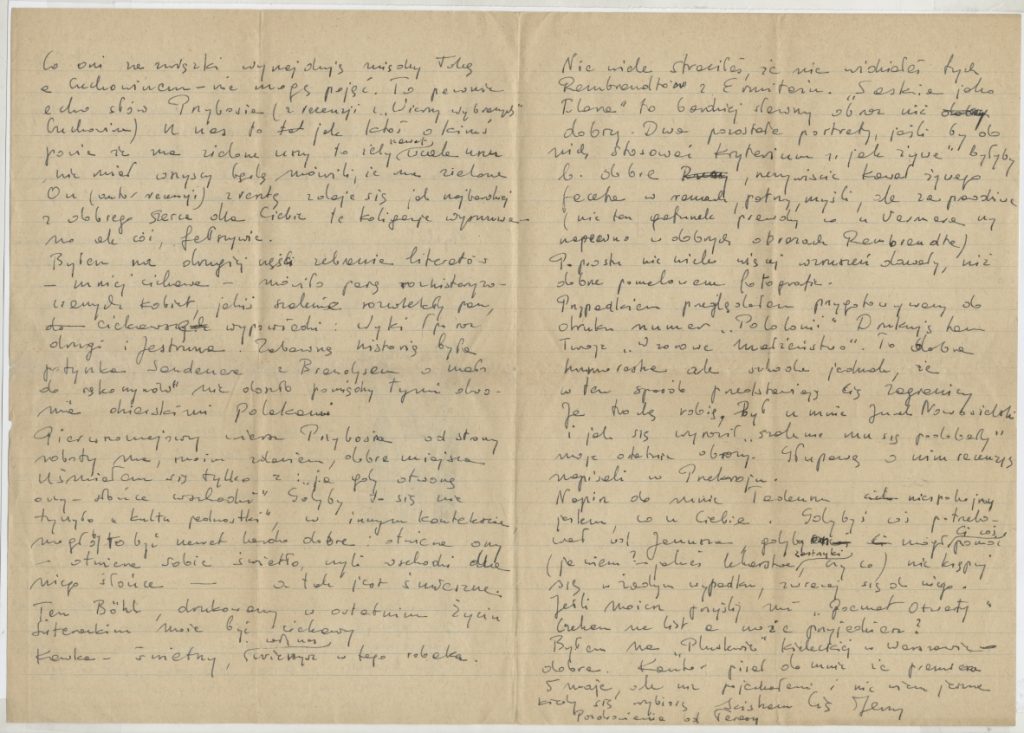 Co oni za związki wynajdują między Tobą
a Cuchowincem - nie mogę pojąć. To pewnie
echo słów Przybosia (z recenzji z „Wierszy wybranych"
U nas to tak jak ktoś o kimś
powie że ma zielone uszy to choćby nawet wcale uszu
nie miał wszyscy będą mówili, że ma zielone
On (autor recenzji) zresztą zdaje się jak najbardziej
z dobrego serca dla Ciebie te koligacje wysnuwa-
no ale cóż, fałszywie.
Byłem na drugiej części zebrania literatów
- mniej ciekawe - mówiło parę
kobiet, jakiś szalenie rozwlekły pan,
ciekawsze wypowiedzi: Wyki (po raz
drugi i Jastruna. Zabawną historią była
potyczka Sandauera z Brandysem o mało
do rękoczynów" nie doszło pomiędzy tymi dwo-
ma dziarskimi Polakami
Pierwszomajowy wiersz Przybosia od strony
roboty ma, moim zdaniem, dobre miejsca
Uśmiałem się tylko z „ja gdy otworzę
oczy - słońce wschodzi" Gdyby to się nie
tyczyło „kultu jednostki", w innym kontekście
mogłoby to być nawet bardzo dobre: otwiera oczy
- otwiera sobie światło, czyli wschodzi dla
niego słońce — a tak jest śmieszne.
Ten Böhl, drukowany w ostatnim Życiu
Literackim może być ciekawy
Kawka - świetny, w tego robaka.
Nie wiele straciłeś, że nie widziałeś tych
Rembrandtów z Ermitażu. „Saskia jako
Flora" to bardziej sławny obraz niż
dobry. Dwa pozostałe portrety, jeśli by do
nich stosować kryterium „jak żywe" byłyby
b. dobre, rzeczywiście kawał żywego
faceta w ramach, patrzy, myśli, ale za prawdziwe
(nie ten gatunek prawdy co u Vermera czy
napewno w dobrych obrazach Rembrandta)
Poprostu nie wiele więcej wzruszeń dawały, niż
dobre pomalowane fotografie.
Przypadkiem przeglądałem przygotowywany do
druku numer „Polonii" Drukują tam
Twoje „Wzorowe Małżeństwo". To dobra
humoreska ale szkoda jednak, że
w ten sposób przedstawiają Cię zagranicy
Ja trochę robię, Był u mnie Jurek Nowosielski
i jak się wyraził „szalenie mu się podobały"
moje ostatnie obrazy. Głupawą o nim recenzję
napisali w Przekroju.
Napisz do mnie Tadeusz niespokojny
jestem, co u Ciebie. Gdybyś coś potrzebo-
wał od Janusza, gdyby mógł Ci coś pomóc
(ja wiem? jakieś lekarstwa, zastrzyki czy co) nie krępuj
się w żadnym wypadku, zwracaj się do niego.
Jeśli możesz przyślij mi „Poemat Otwarty"
Czekam na list a może przyjedziesz?
Byłem na „Pluskwie" kieleckiej w Warszawie -
dobra. Kantor pisał do mnie że premiera
5 maja, ale nie pojechałem i nie wiem jeszcze
kiedy się wybiorę Ściskam Cię Jerzy
Pozdrowienia od Teresy